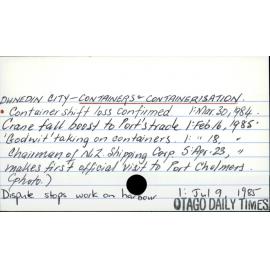 DUNEDIN CITY - CONTAINERS & CONTAINERISATION.
• Container shift loss confirmed 1: Mar 30, 1984.
Crane fall boost to Port's trade 1: Feb 16, 1985.
'Godwit' taking on containers. 1: " 18, "
Chairman of N.Z. Shipping Corp. 5: Apr. 23, "
makes first official visit to Port Chalmers.
(photo.)
Dispute stops work on harbour 1: Jul 9, 1985
OTAGO DAILY TIMES